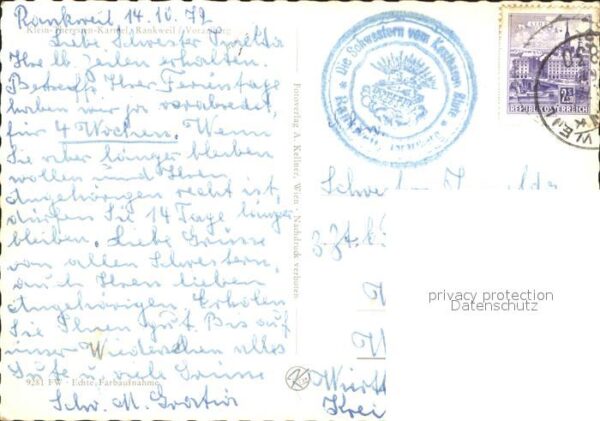 Rankweil 14.10.72
Klein-Theresien-Karmel, Rankweil / Vorarlberg
Liebe Schwester
Ihre lb Zeilen erhalten.
Betreffs Ihrer Ferientage
haben wir ja verabredet,
für 4 Wochen. Wenn
Sie aber länger bleiben
wollen und Ihren
Angehörigen recht ist,
dürfen Sie 14 Tage länger
bleiben. Liebe Grüsse
von allen Schwestern,
auch Ihren lieben
Angehörigen. Erholen
Sie Ihnen gut. Bis auf
unser Wiedersehen alles
Gute u. viele Grüsse
9281 FW - Echte Farbaufnahme
Schw. M. Gratia
Fotoverlag A. Kellner, Wien - Nachdruck verboten
Die Schwestern vom
REPUBLIK ÖSTERREICH
z.Zt.
Württ
Krei
privacy protection
Datenschutz